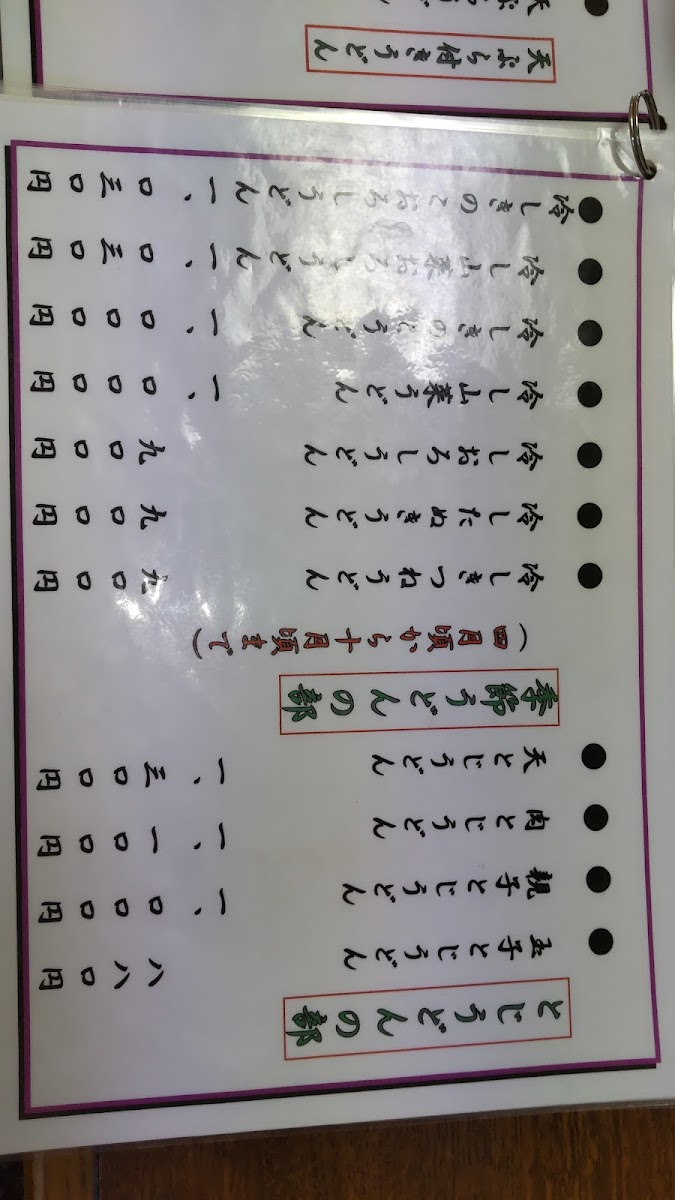 とじうどんの部
●玉子とじうどん 八八〇円
●親子とじうどん 一、〇〇〇円
●肉とじうどん 一、一〇〇円
●天とじうどん 一、三〇〇円
季節うどんの部
(四月頃から十月頃まで)
●冷しきつねうどん 九〇〇円
●冷したぬきうどん 九〇〇円
●冷しおろしうどん 九〇〇円
●冷し山菜うどん 一、〇〇〇円
●冷しきのこうどん 一、〇〇〇円
●冷し山菜おろしうどん 一、〇三〇円
●冷しきのこおろしうどん 一、〇三〇円
天ぷら付きうどん